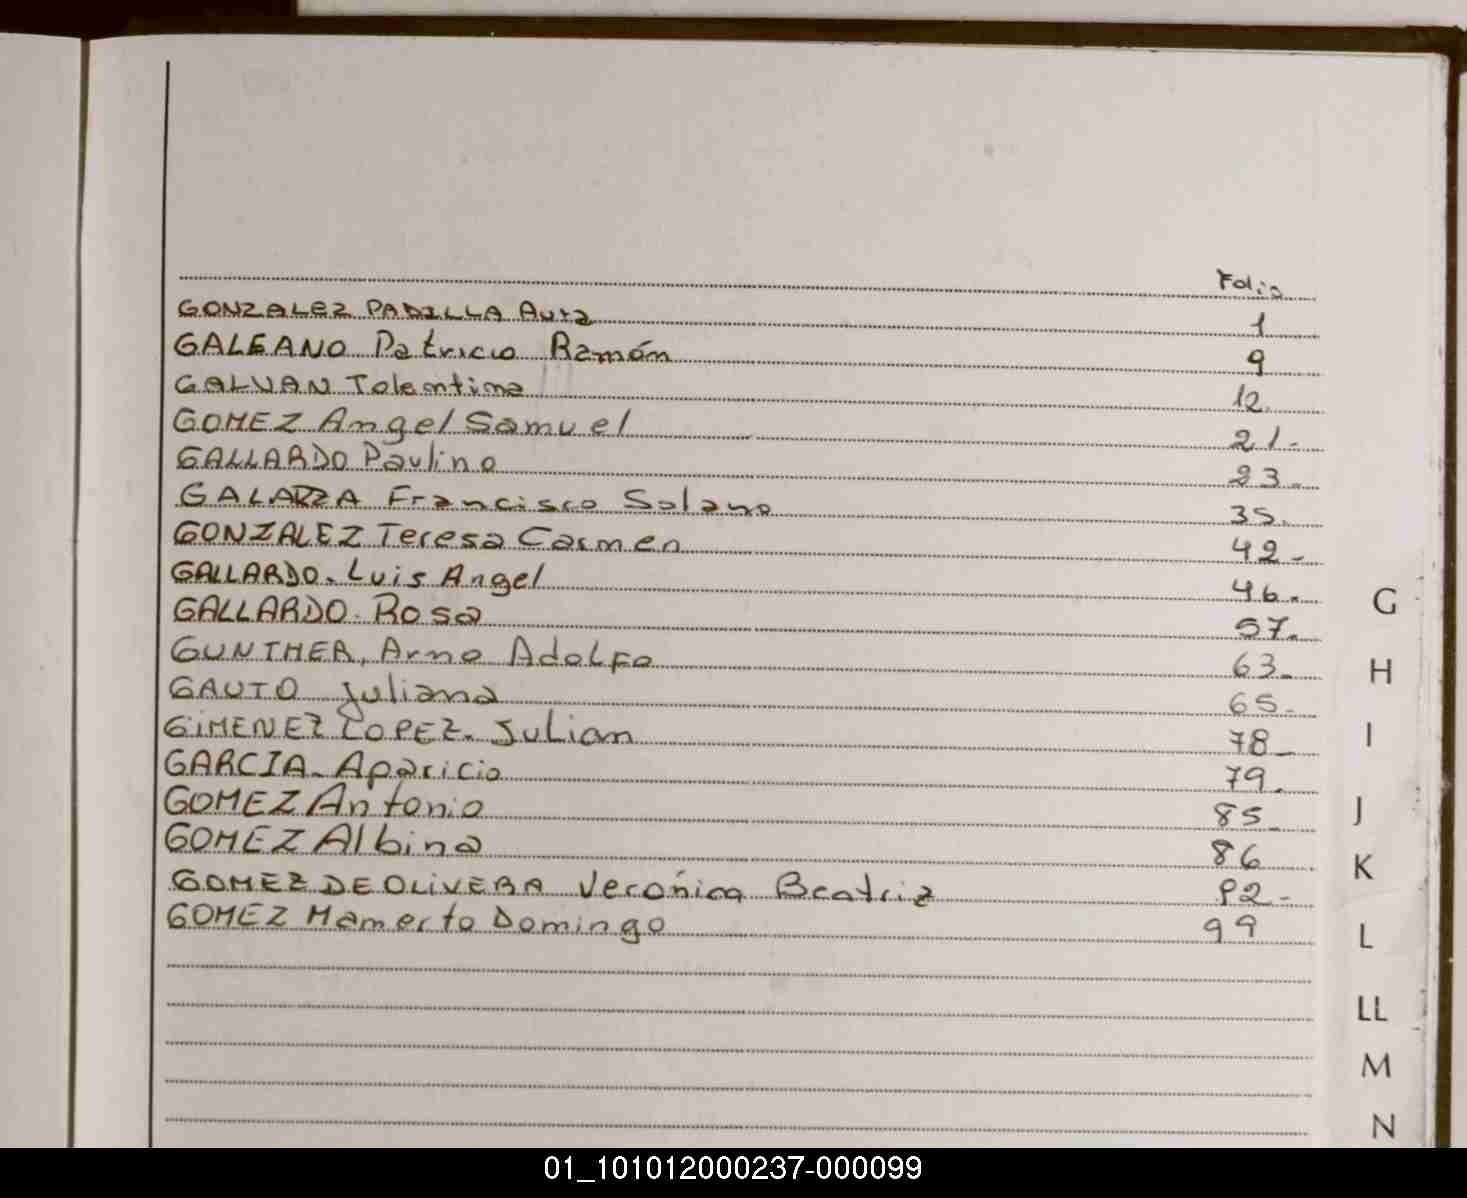 Folio
GONZALEZ PADILLA Aura 1
GALEANO Patricio Ramón 9
GALVAN Tolentina 12.
GOMEZ Angel Samuel 21-
GALLARDO Paulino 23-
GALARZA Francisco Solano 35.
GONZALEZ Teresa Carmen 42-
GALLARDO. Luis Angel 46.
GALLARDO. Rosa 57.
GUNTHER, Arno Adolfo 63-
GAUTO Juliana 65-
GIMENEZ LOPEZ. Julian 78-
GARCIA. Aparicio 79.
GOMEZ Antonio 85-
GOMEZ Albina 86
GOMEZ DE OLIVERA Verónica Beatriz 92-
GOMEZ Mamerto Domingo 99
G
H
I
J
K
L
LL
M
N
01_101012000237-000099